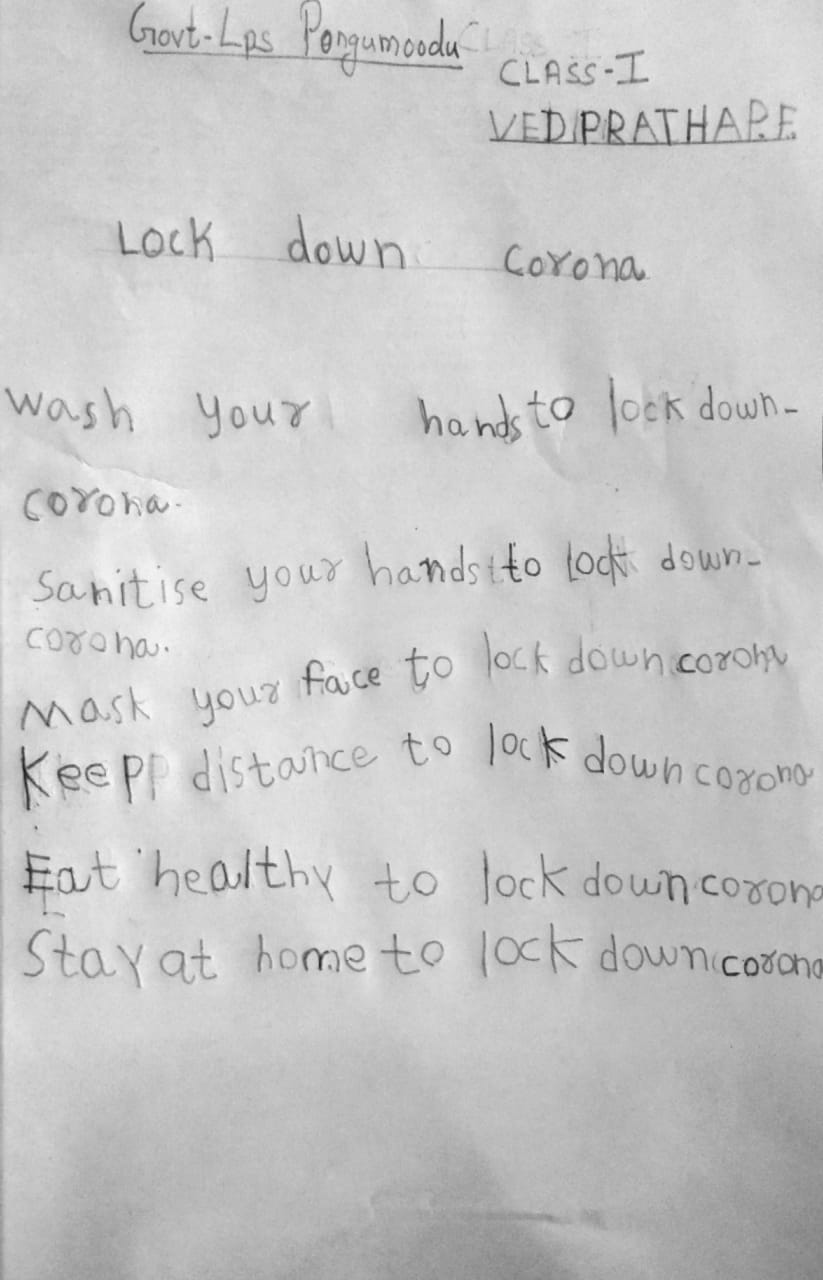 Govt-Lps Pongumoodu
CLASS-I
VEDPRATHAP.F
Lock down corona
Wash your hands to lock down-
corona.
Sanitise your hands to lock down-
corona.
Mask your face to lock down corona
Keep distance to lock down corona
Eat healthy to lock down corona
Stay at home to lock down corona